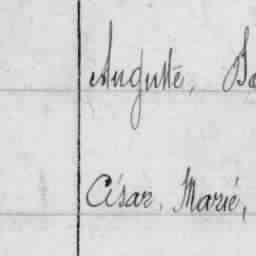 Auguste, Ba
César, Marie,